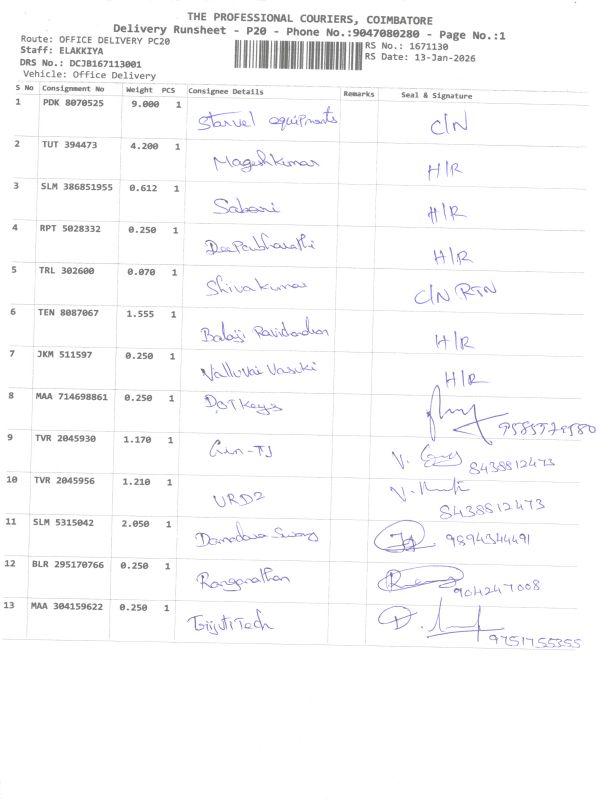 THE PROFESSIONAL COURIERS, COIMBATORE
Delivery Runsheet - P20 - Phone No.:9047080280 - Page No.:1
Route: OFFICE DELIVERY PC20 RS No.: 1671130
Staff: ELAKKIYA RS Date: 13-Jan-2026
DRS No.: DCJB167113001
Vehicle: Office Delivery
S No Consignment No Weight PCS Consignee Details Remarks Seal & Signature
1 PDK 8070525 9.000 1 Starvel equipments C/N
2 TUT 394473 4.200 1 Mageshkumar H/R
3 SLM 386851955 0.612 1 Sabari H/R
4 RPT 5028332 0.250 1 H/R
5 TRL 302600 0.070 1 Shivakumar C/N RTN
6 TEN 8087067 1.555 1 Balaji H/R
7 JKM 511597 0.250 1 Valluvai Vasuki H/R
8 MAA 714698861 0.250 1 DOT Keys
9 TVR 2045930 1.170 1 8438812473
10 TVR 2045956 1.210 1 URD2 8438812473
11 SLM 5315042 2.050 1 9894344491
12 BLR 295170766 0.250 1 Ranganathan 904247008
13 MAA 304159622 0.250 1 9751755355